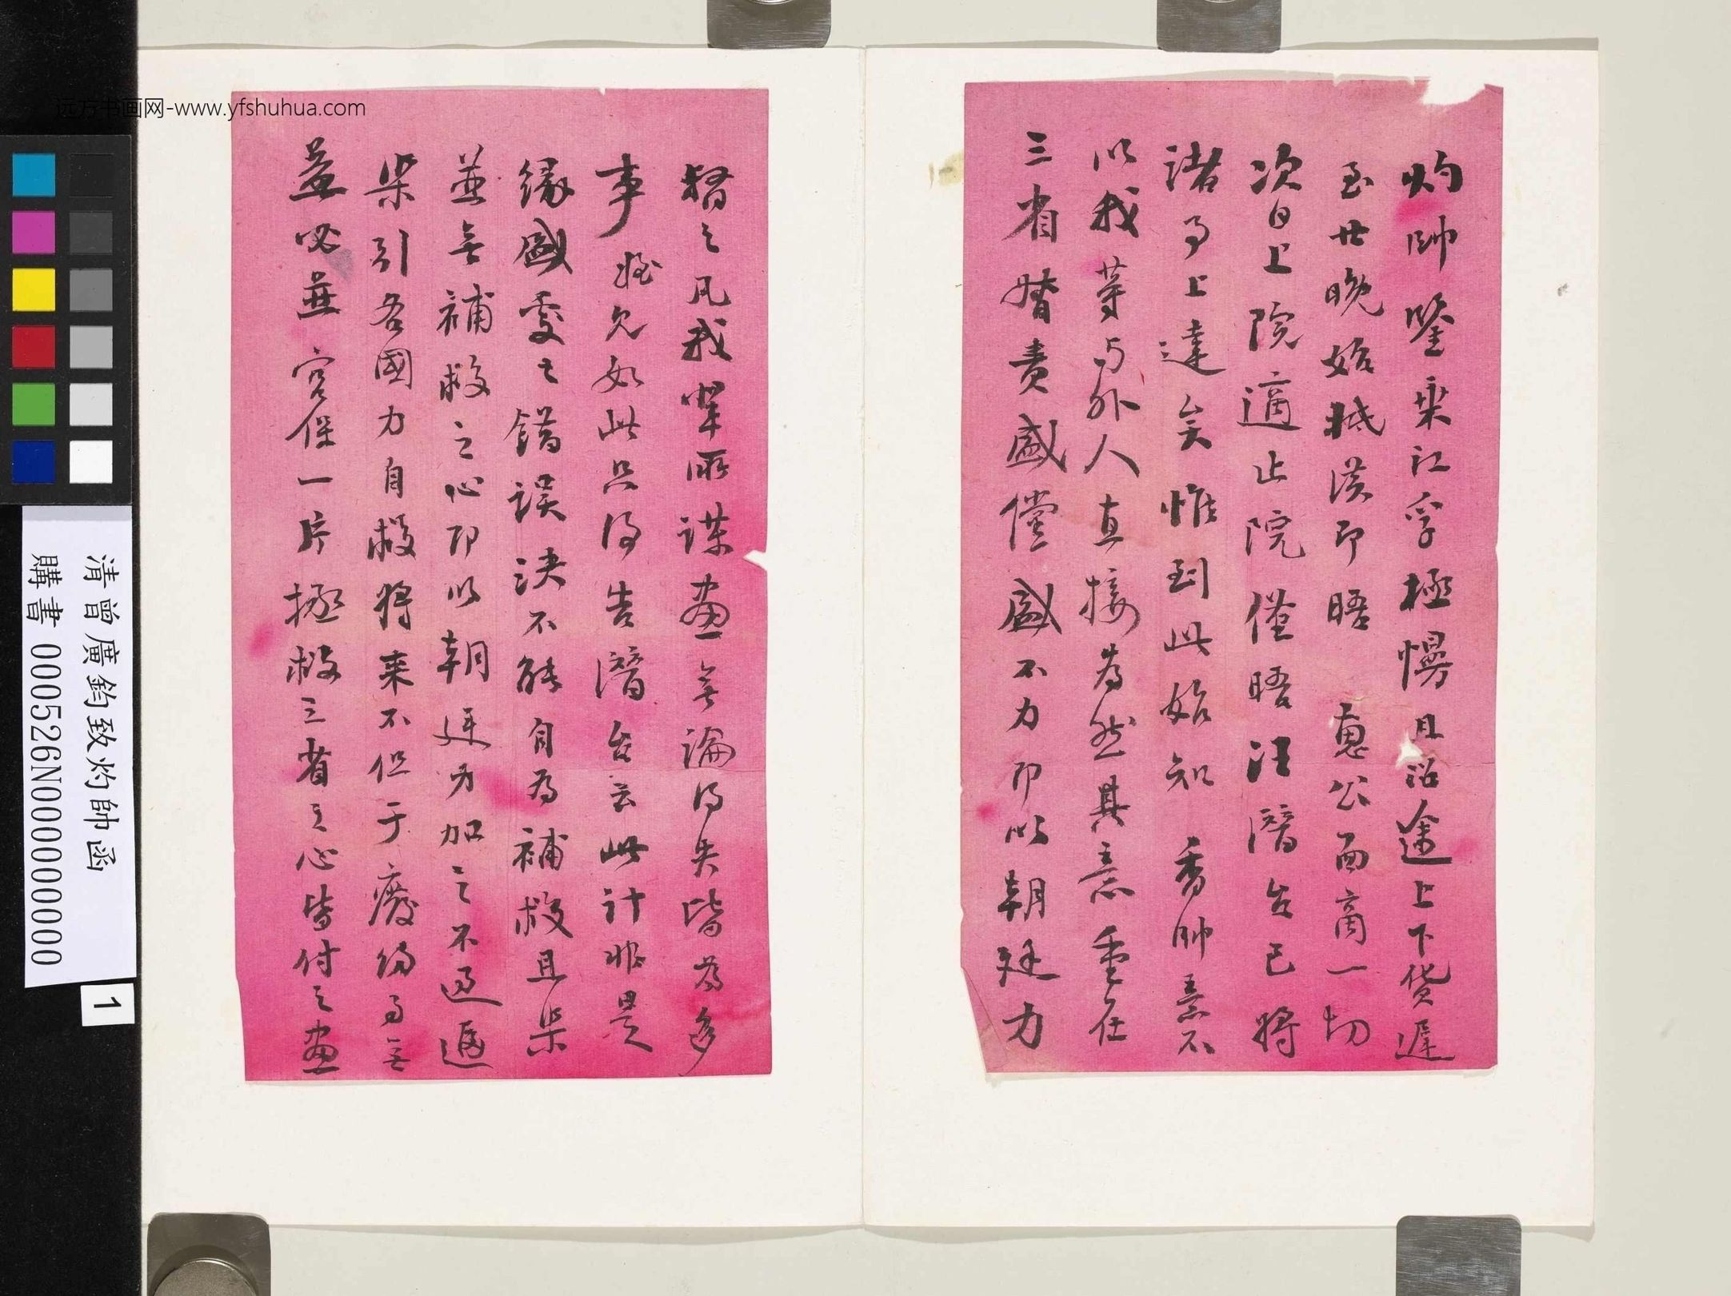 灼帥鑒乘江孚極慢且沿途上下貨遲
至廿晚始抵漢即晤蕙公面商一切
次日上院適止院僅晤汪潛台已將
諸事上達矣惟到此始知香帥意不
以我等與外人直接為然其意重在
三省督責盛償盛不力即以朝廷力
督之凡我輩所謀畫無論得失皆為多
事恠兄如此只得告潛台云此計非是
緣盛處之錯誤決不能自為補救且柴
並無補救之心即以朝廷力加之不過逼
柴引各國力自救將來不但于廢約事無
益必並宮保一片拯救三省之心皆付之畫
远方书画网-www.yfshuhua.com
清曾廣鈞致灼帥函
購書 000526N000000000
1